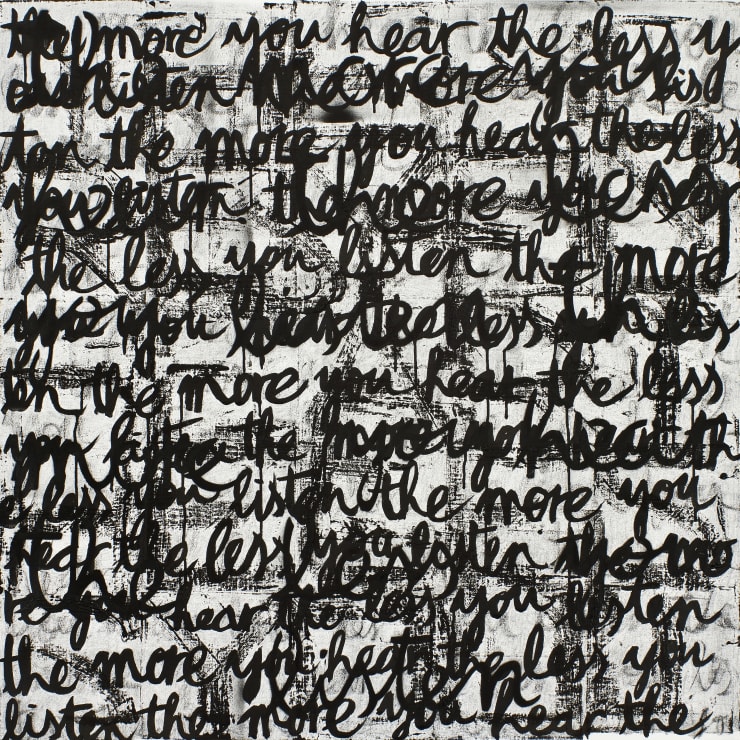 the more you hear the less y
ou listen the more you lis
ten the more you hear the less
you listen the more you hear
the less you listen the more
you hear the less lis
ten the more you hear the less
you listen the more you hear th
e less you listen the more you
hear the less you listen the mo
re you hear the less you listen
the more you hear the less you
listen the more you hear the